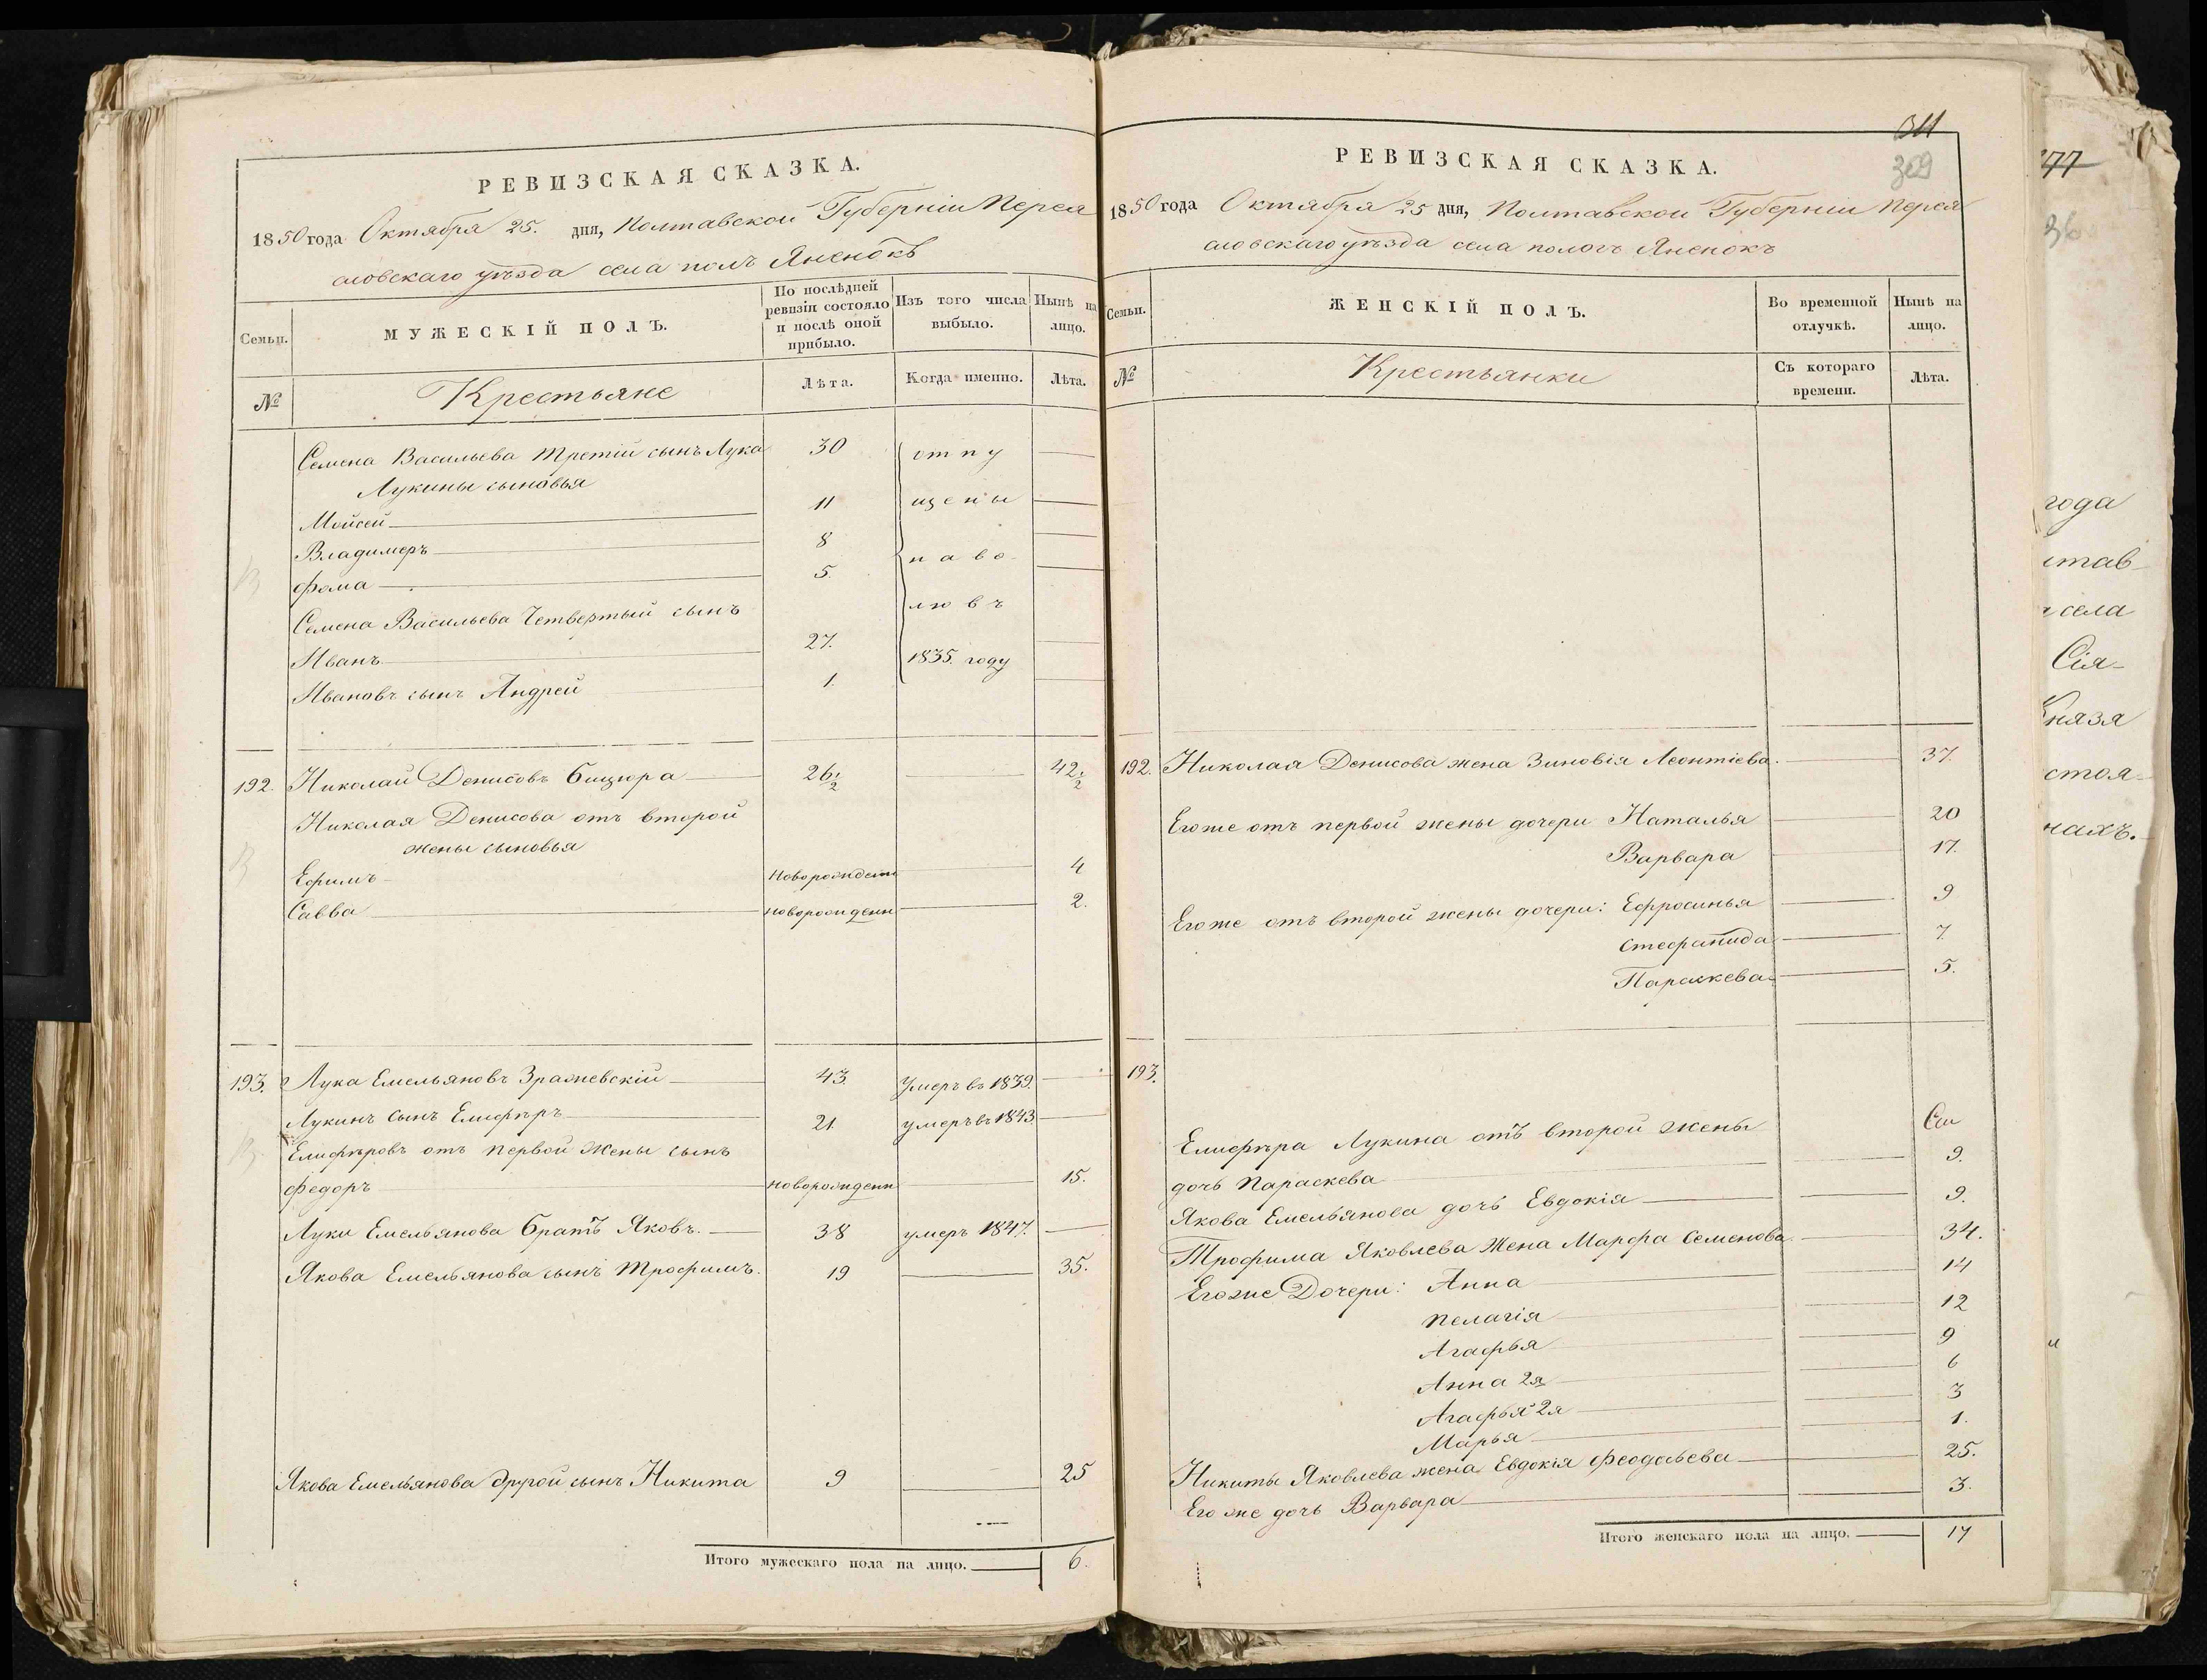 РЕВИЗСКАЯ СКАЗКА.
1850 года Октября 25. дня, Полтавской Губерніи Перея
словскаго уѣзда села полъ Яненокъ
Семьи.
МУЖЕСКІЙ ПОЛЪ.
По послѣдней
ревизіи состояло
и послѣ оной
прибыло.
Изъ того числа
выбыло.
Нынѣ на
лицо.
№
Крестьяне
Лѣта.
Когда именно.
Лѣта.
Семена Васильева третій сынъ Лука 30 отпу
Лукины сыновья
Мойсей 11 щены
Владимеръ 8
Фома 5. на во
Семена Васильева Четвертый сынъ лювъ
Иванъ 27. 1835. году
Ивановъ сынъ Андрей 1.
192. Николай Денисовъ Бицюра 26 1/2 42 1/2
Николая Денисова отъ второй
жены сыновья
Ефимъ новорожденн 4
Савва новорожденн 2.
193. Лука Емельяновъ Зражевскій 43. Умеръ въ 1839.
Лукинъ сынъ Елифѣръ 21 умеръ въ 1843
Елифѣровъ отъ первой жены сынъ
Федоръ новорожденн 15.
Луки Емельянова братъ Яковъ. 38 умеръ 1847.
Якова Емельянова сынъ Трофимъ. 19 35.
Якова Емельянова другой сынъ Никита 9 25
Итого мужескаго пола на лицо. 6.
311
309
РЕВИЗСКАЯ СКАЗКА.
1850 года Октября 25 дня, Полтавской Губерніи Перея
словскаго уѣзда села пологъ Яненокъ
Семьи.
ЖЕНСКІЙ ПОЛЪ.
Во временной
отлучкѣ.
Нынѣ на
лицо.
№
Крестьянки
Съ котораго
времени.
Лѣта.
192. Николая Денисова жена Зиновія Леонтіева. 37.
Его же отъ первой жены дочери Наталья 20
Варвара 17.
Его же отъ второй жены дочери: Ефросинья 9
Стефанида 7.
Параскева 5.
193.
Елифѣра Лукина отъ второй жены
дочь Параскева 9.
Якова Емельянова дочь Евдокія 9.
Трофима Яковлева Жена Марфа Семенова 34.
Его же Дочери: Анна 14
Пелагія 12
Агафья 9
Анна 2я 6
Агафья 2я 3
Марья 1.
Никиты Яковлева жена Евдокія Феодосьева 25.
Его же дочь Варвара 3.
Итого женскаго пола на лицо. 17
77
36
года
села
Сія
Князя
стоя
нахъ.